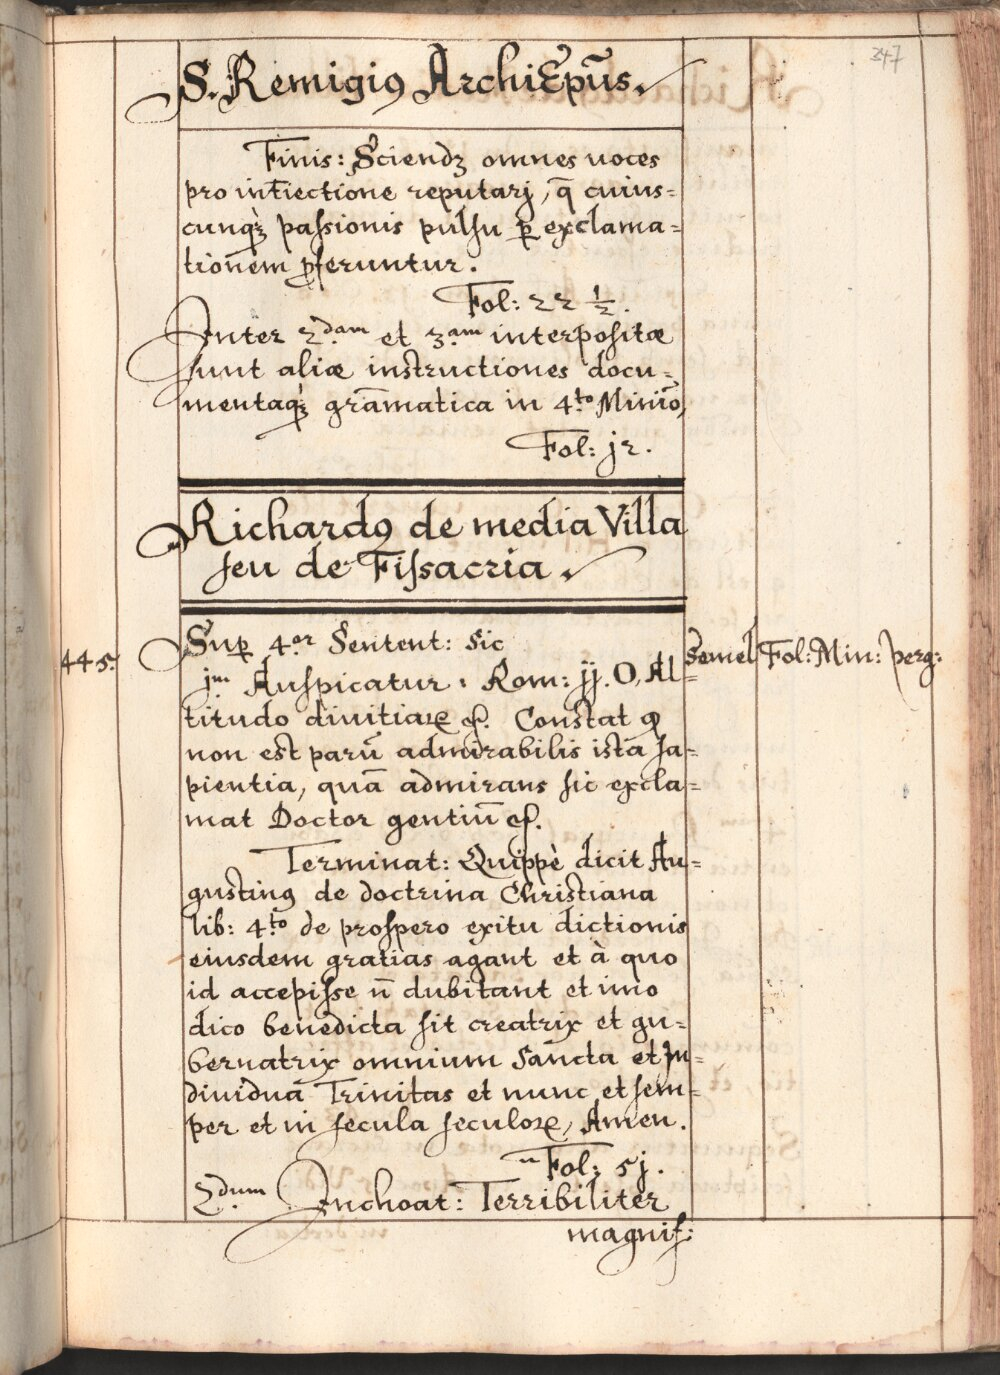 347
S. Remigiꝰ ArchiEpũs.
Finis: Sciendꝫ omnes uoces
pro intiectione reputarj, q̃ cuius=
cunqꝫ̀ passionis pulsu ꝑ exclama=
tionem ꝓferuntur.
Fol: 22 ½.
Inter 2.dam et 3.am interpositæ
sunt aliæ instructiones docu=
mentaqꝫ̀ gram̃atica in 4.to Minio,
Fol: j2.
Richardꝰ de media Villa
seu de Fissacria.
445. Suꝑ 4.or Sentent: sic Semel Fol: Min: perg:
j.m Auspicatur. Rom: jj. O, Al=
titudo diuitiaꝝ ec. Constat ꝙ
non est parũ admirabilis ista Sa=
pientia, quã admirans sic excla=
mat Doctor gentiũ ec.
Terminat: Quippè dicit Au=
gustinꝰ de doctrina Christiana
lib: 4.to de prospero exitu dictionis
eiusdem gratias agant et à quo
id accepisse ñ dubitant et imo
dico benedicta sit creatrix et gu=
bernatrix omnium Sancta et In=
diuidua Trinitas et nunc et sem=
per et in secula seculoꝝ, Amen.
Fol: 5j.
2.dum Inchoat: Terribiliter
magnif: